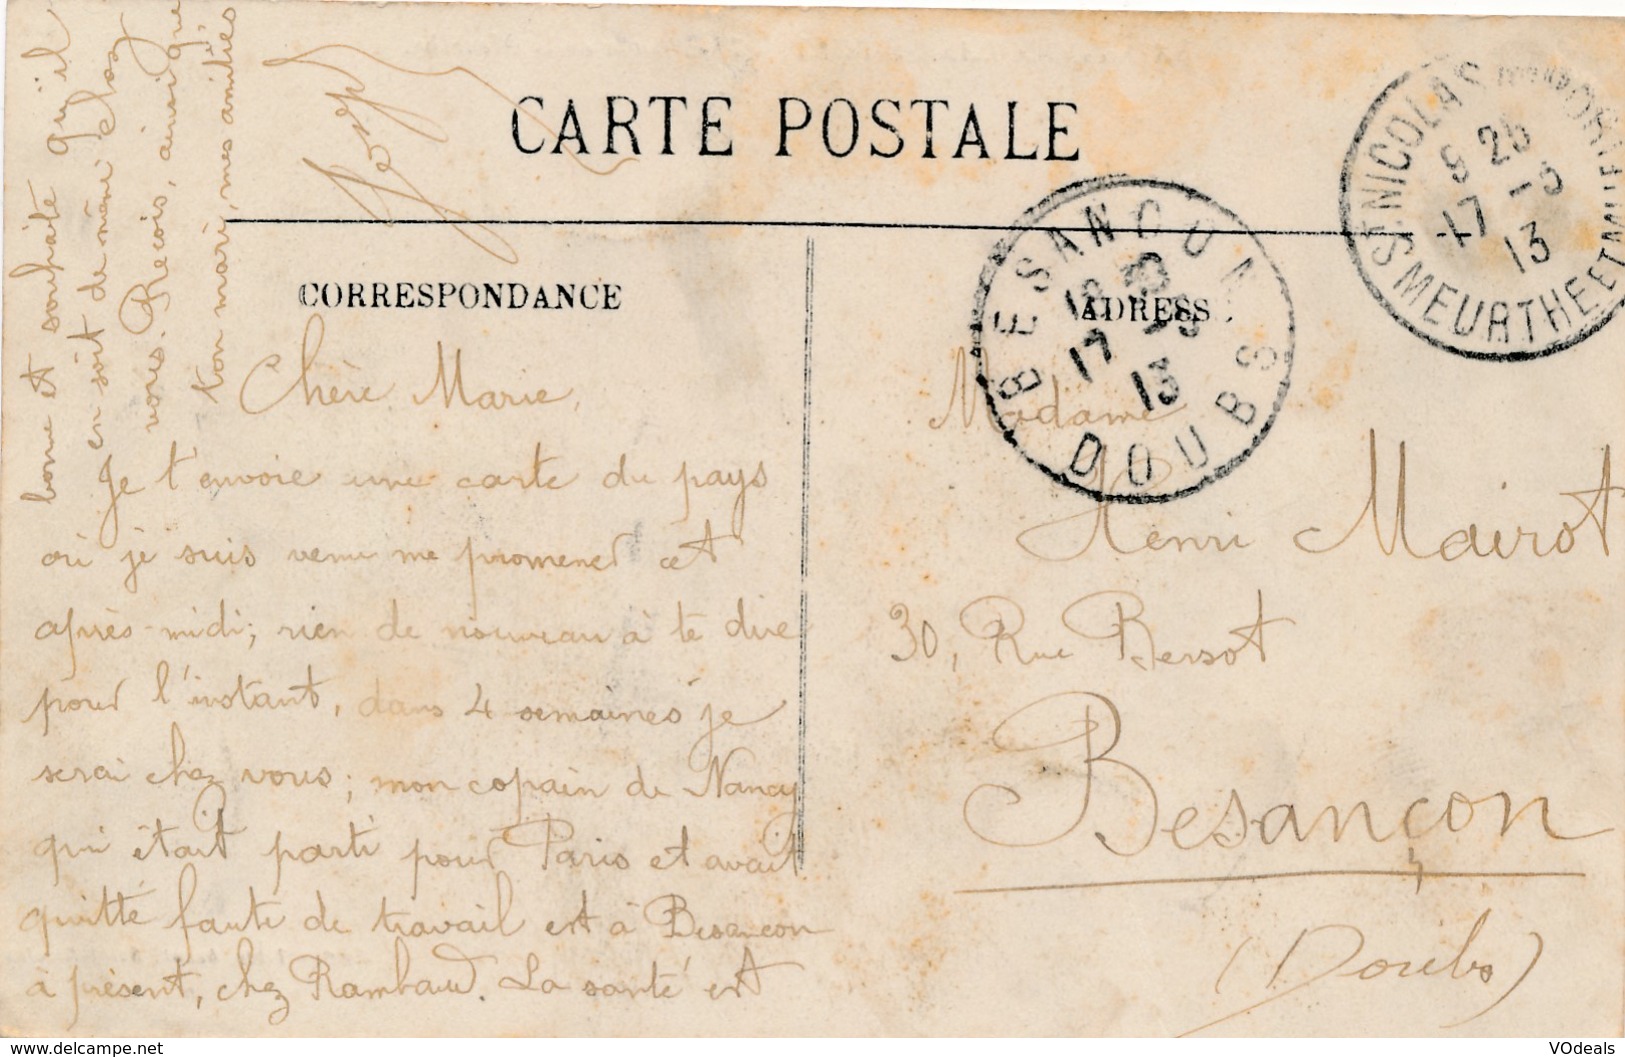 CARTE POSTALE
CORRESPONDANCE
ADRESSE
Chère Marie,
Je t'envoie une carte du pays
où je suis venu me promener cet
après-midi; rien de nouveau à te dire
pour l'instant, dans 4 semaines je
serai chez vous; mon copain de Nancy
qui était parti pour Paris et avait
quitté faute de travail est à Besançon
à présent, chez Rambaud. La santé est
bonne et souhaite qu'il
en soit de même chez
vous. Reçois, ainsi que
ton mari, mes amitiés
Madame
Henri Mairot
30, Rue Bersot
Besançon
(Doubs)
BESANCON
17 -5
13
DOUBS
ST NICOLAS DU PORT
9 25
17 -5
13
MEURTHE ET MLLE
VOdeals